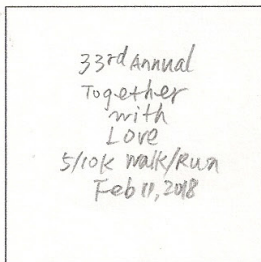 33rd Annual
Together
with
Love
5/10K Walk/Run
Feb 11, 2018